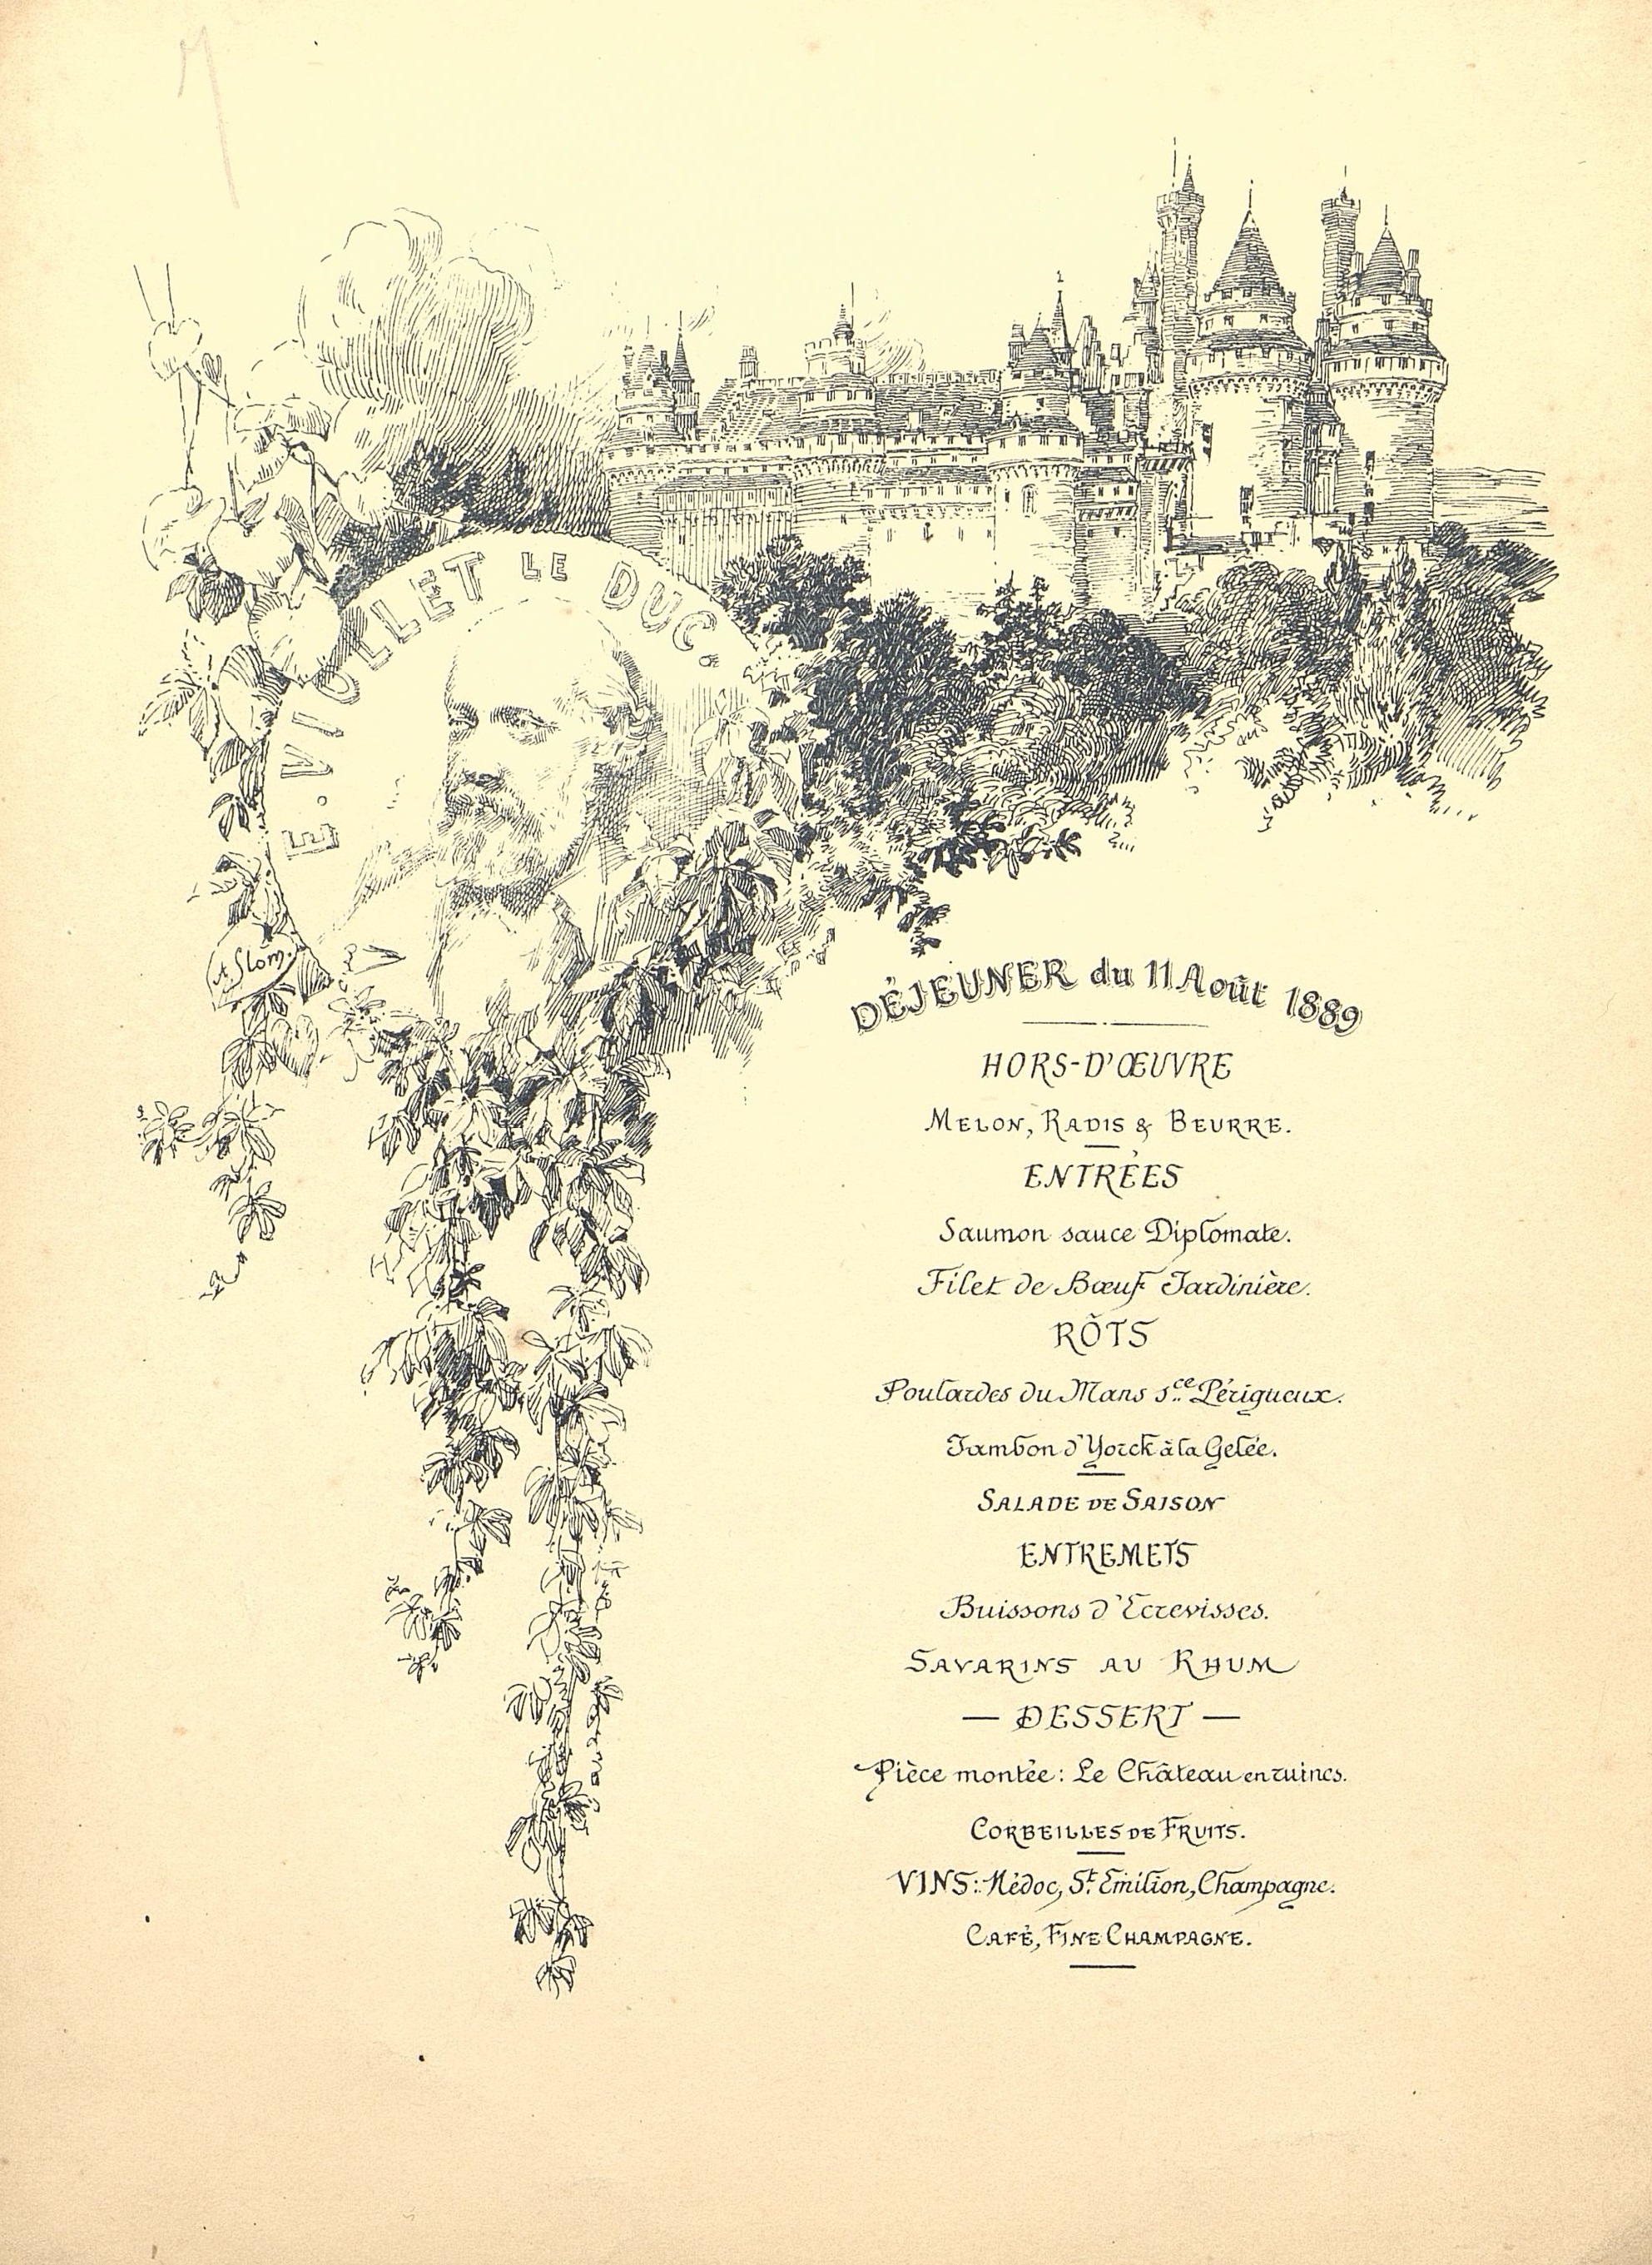 E. VIOLLET LE DUC.
A. Slom.
DÉJEUNER du 11 Août 1889
HORS-D'ŒUVRE
MELON, RADIS & BEURRE.
ENTRÉES
Saumon sauce Diplomate.
Filet de Bœuf Jardinière.
RÔTS
Poulardes du Mans sce Périgueux.
Jambon d'Yorck à la Gelée.
SALADE DE SAISON
ENTREMETS
Buissons d'Ecrevisses.
SAVARINS AU RHUM
— DESSERT —
Pièce montée: Le Château en ruines.
CORBEILLES DE FRUITS.
VINS: Médoc, St. Emilion, Champagne.
CAFÉ, FINE CHAMPAGNE.